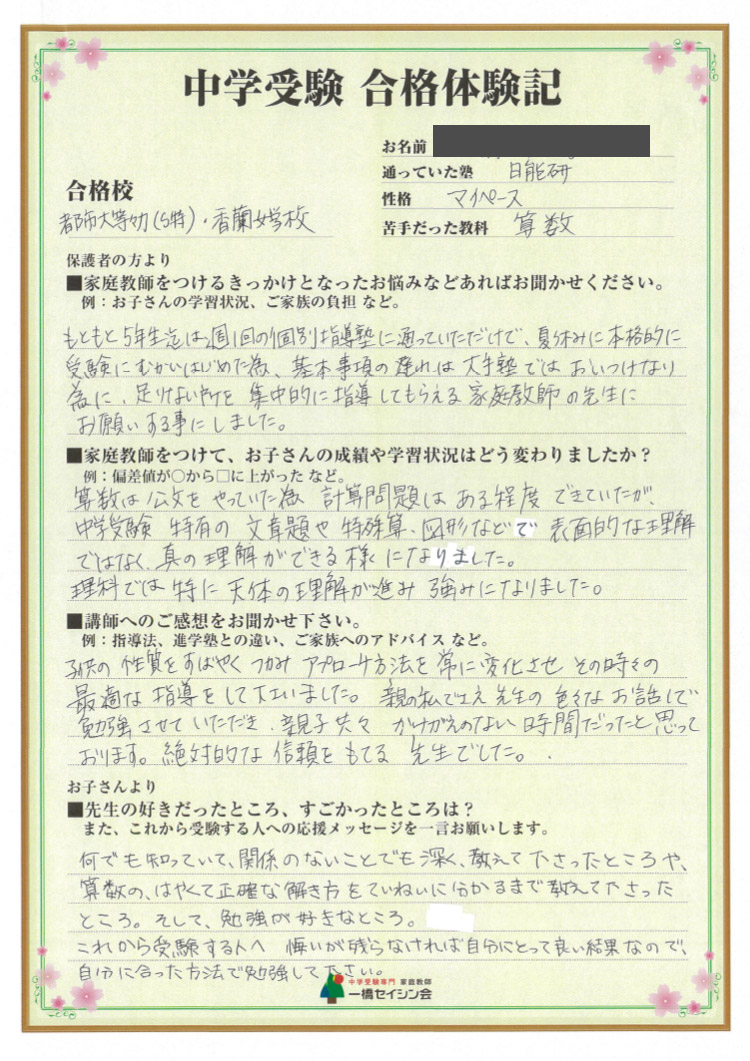 中学受験 合格体験記
お名前
通っていた塾 日能研
合格校
性格 マイペース
都市大等々力(S特)・香蘭女学校
苦手だった教科 算数
保護者の方より
■家庭教師をつけるきっかけとなったお悩みなどあればお聞かせください。
例：お子さんの学習状況、ご家族の負担 など。
もともと5年生迄は週1回の個別指導塾に通っていただけで、夏休みに本格的に
受験にむかいはじめた為、基本事項の遅れは大手塾ではおいつけない
為に、足りない所を集中的に指導してもらえる家庭教師の先生に
お願いする事にしました。
■家庭教師をつけて、お子さんの成績や学習状況はどう変わりましたか？
例：偏差値が○から□に上がった など。
算数は公文をやっていた為 計算問題はある程度できていたが、
中学受験 特有の文章題や特殊算、図形などで表面的な理解
ではなく、真の理解ができる様になりました。
理科では特に天体の理解が進み強みになりました。
■講師へのご感想をお聞かせ下さい。
例：指導法、進学塾との違い、ご家族へのアドバイス など。
子供の性質をすばやくつかみアプローチ方法を常に変化させその時々の
最適な指導をして下さいました。親の私でさえ先生の色々なお話しで
勉強させていただき、親子共々かけがえのない時間だったと思って
おります。絶対的な信頼をもてる先生でした。
お子さんより
■先生の好きだったところ、すごかったところは？
また、これから受験する人への応援メッセージを一言お願いします。
何でも知っていて、関係のないことでも深く、教えて下さったところや、
算数の、はやくて正確な解き方をていねいに分かるまで教えて下さった
ところ。そして、勉強が好きなところ。
これから受験する人へ 悔いが残らなければ自分にとって良い結果なので、
自分に合った方法で勉強して下さい。
中学受験専門 家庭教師
一橋セイシン会